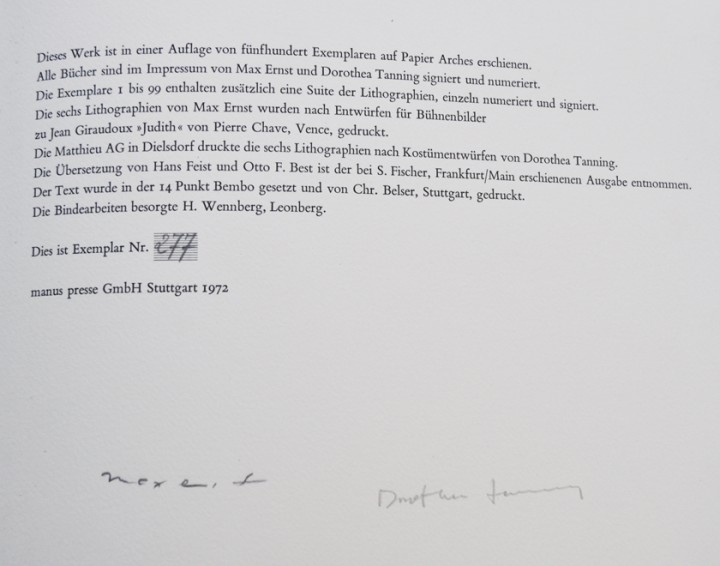 Dieses Werk ist in einer Auflage von fünfhundert Exemplaren auf Papier Arches erschienen.
Alle Bücher sind im Impressum von Max Ernst und Dorothea Tanning signiert und numeriert.
Die Exemplare 1 bis 99 enthalten zusätzlich eine Suite der Lithographien, einzeln numeriert und signiert.
Die sechs Lithographien von Max Ernst wurden nach Entwürfen für Bühnenbilder
zu Jean Giraudoux »Judith« von Pierre Chave, Vence, gedruckt.
Die Matthieu AG in Dielsdorf druckte die sechs Lithographien nach Kostümentwürfen von Dorothea Tanning.
Die Übersetzung von Hans Feist und Otto F. Best ist der bei S. Fischer, Frankfurt/Main erschienenen Ausgabe entnommen.
Der Text wurde in der 14 Punkt Bembo gesetzt und von Chr. Belser, Stuttgart, gedruckt.
Die Bindearbeiten besorgte H. Wennberg, Leonberg.
Dies ist Exemplar Nr. 277
manus presse GmbH Stuttgart 1972
max ernst
Dorothea Tanning